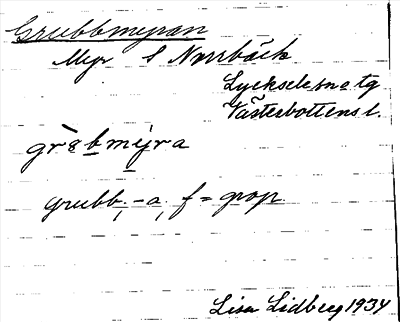 Grubbmyran
Myr S Norrbäck
Lycksele sn o tg
Västerbottens l.
gr&#96;ȣbmýra
grubb, -a, f = grop.
Lisa Lidberg 1934